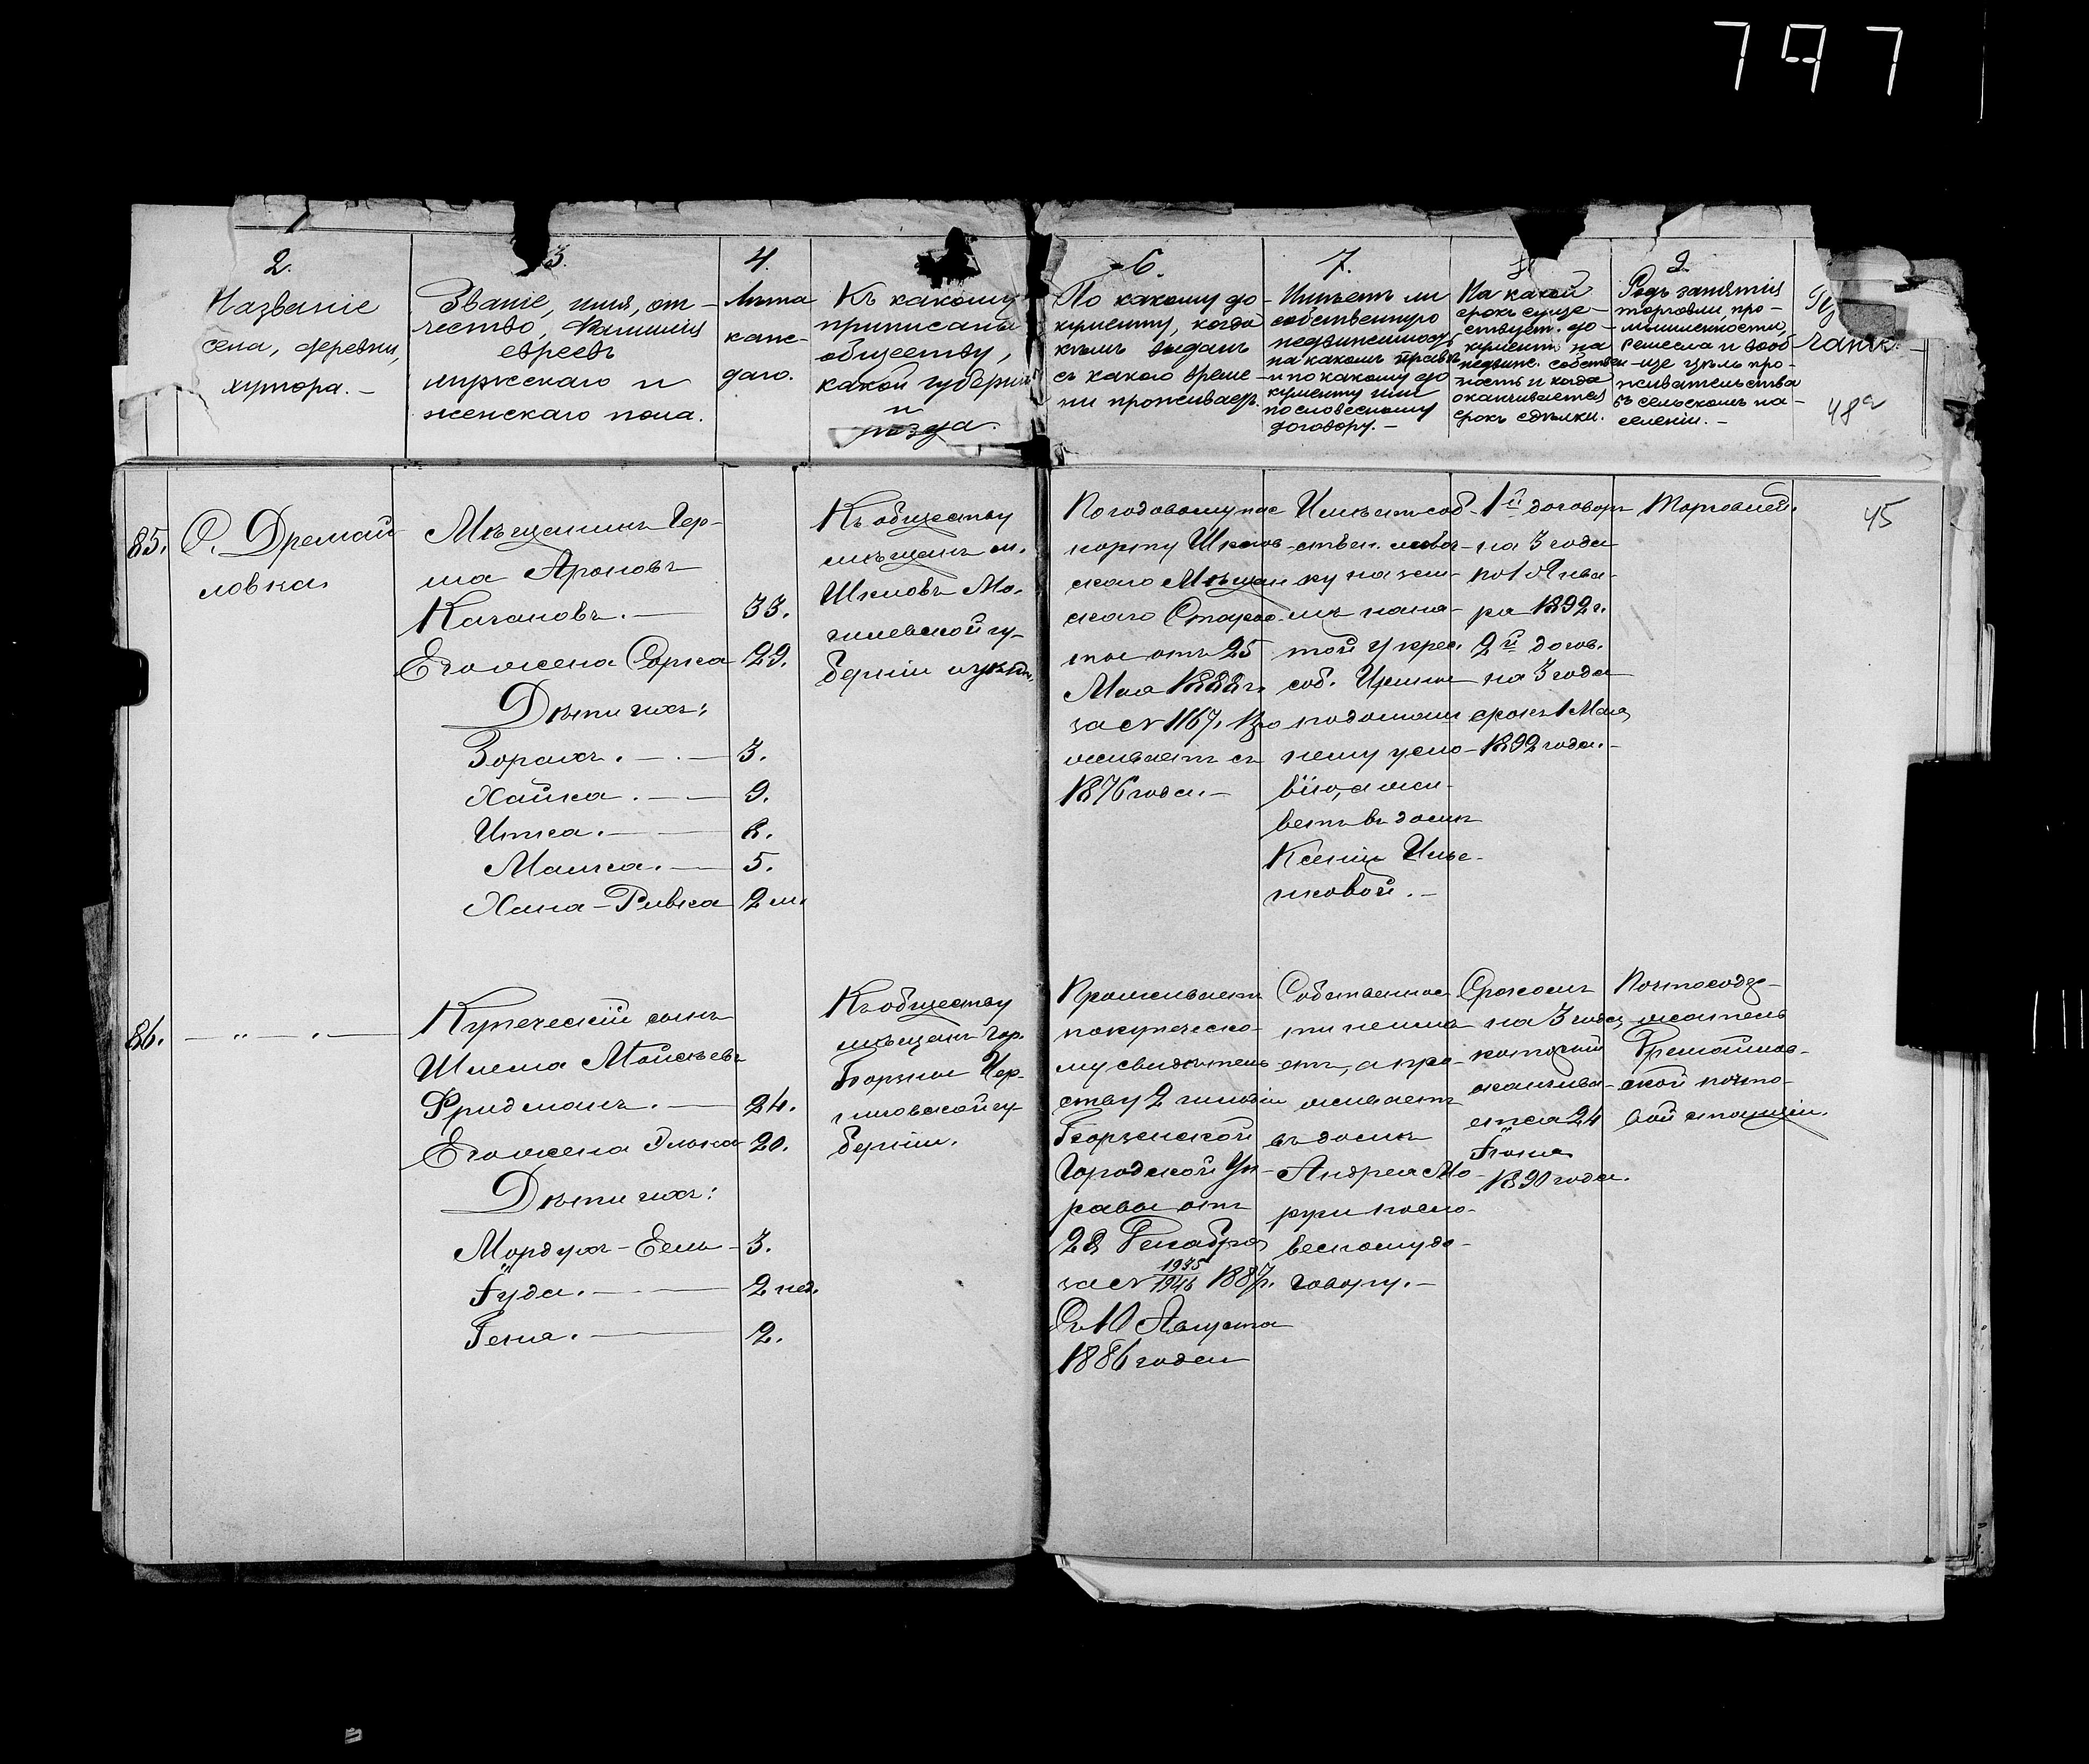 797
2.
Названіе
села, деревни,
хутора. –
3.
Званіе, имя, от-
чество, Фамилія
евреевъ
мужескаго и
женскаго пола.
4.
Лѣта
каж-
даго.
Къ какому
приписаны
обществу,
какой губерніи
и
уѣзда.
6.
По какому до-
кументу, когда
кѣмъ выданъ
съ какого време-
ни проживаетъ.
7.
Имѣетъ ли
собственную
недвижимость
на какомъ правѣ
и по какому до-
кументу или
по словесному
договору. –
На какой
срокъ суще-
ствует. до-
кументъ на
недвиж. собствен-
ность и когда
оканчивается
срокъ сдѣлки.
9.
Родъ занятія
торговли, про-
мышленности,
ремесла и вооб-
ще цѣль про-
живательства
въ сельскомъ на-
селеніи. –
48а
45
85.
С. Дремай-
ловка
Мѣщанинъ Гер-
ша Ароновъ
Качановъ. — 33.
Его жена Сорка 29.
Дѣти ихъ:
Зорахъ. — 3.
Хайка. — 9.
Итка. — 8.
Машка. — 5.
Хана-Ривка 2 м.
Къ обществу
мѣщанъ м.
Шкловъ Мо-
гилевской гу-
берніи и уѣзда.
По годовому пас
порту Шклов-
скаго Мѣщан
скаго Старо-
сты отъ 25
Мая 1888 г.
за № 1167, Про
живаетъ съ
1876 года. –
Имѣетъ соб-
ствен. лавоч-
ку на зем-
лѣ наня-
той у крес.
соб.
по домаш
нему усло-
вію, а жи-
ветъ въ домѣ
Ксеніи Илье-
нковой. –
1й договоръ
на 3 года
по 1 Янва-
ря 1892 г.
2й догов.
на 3 года
срокъ 1 Мая
1892 года. –
Торговлей.
86.
— " — " —
Купеческій сынъ
Шлема Мойсѣевъ
Фридманъ. — 24.
Его жена Элька 20.
Дѣти ихъ:
Мордухъ-Бель — 3.
Іуда. — 2 нед.
Геня. — 2.
Къ обществу
мѣщанъ гор.
Борзны Чер-
ниговской гу-
берніи.
Проживаетъ
по купеческо-
му свидѣтель
ству 2 гильдіи
Борзенской
Городской Уп-
равы отъ
28 Декабря
за № 1935/1946 1887 г.
Съ 10 Августа
1886 года
Собственнос
ти неимѣ
етъ, а про-
живаетъ
въ домѣ
Андрея Мо-
руги по сло-
весному до-
говору. –
Срокомъ
на 3 года,
который
оканчива-
ется 24
Іюня
1890 года.
Почтосодер-
жатель
Дремайлов-
ской почто-
вой станціи.